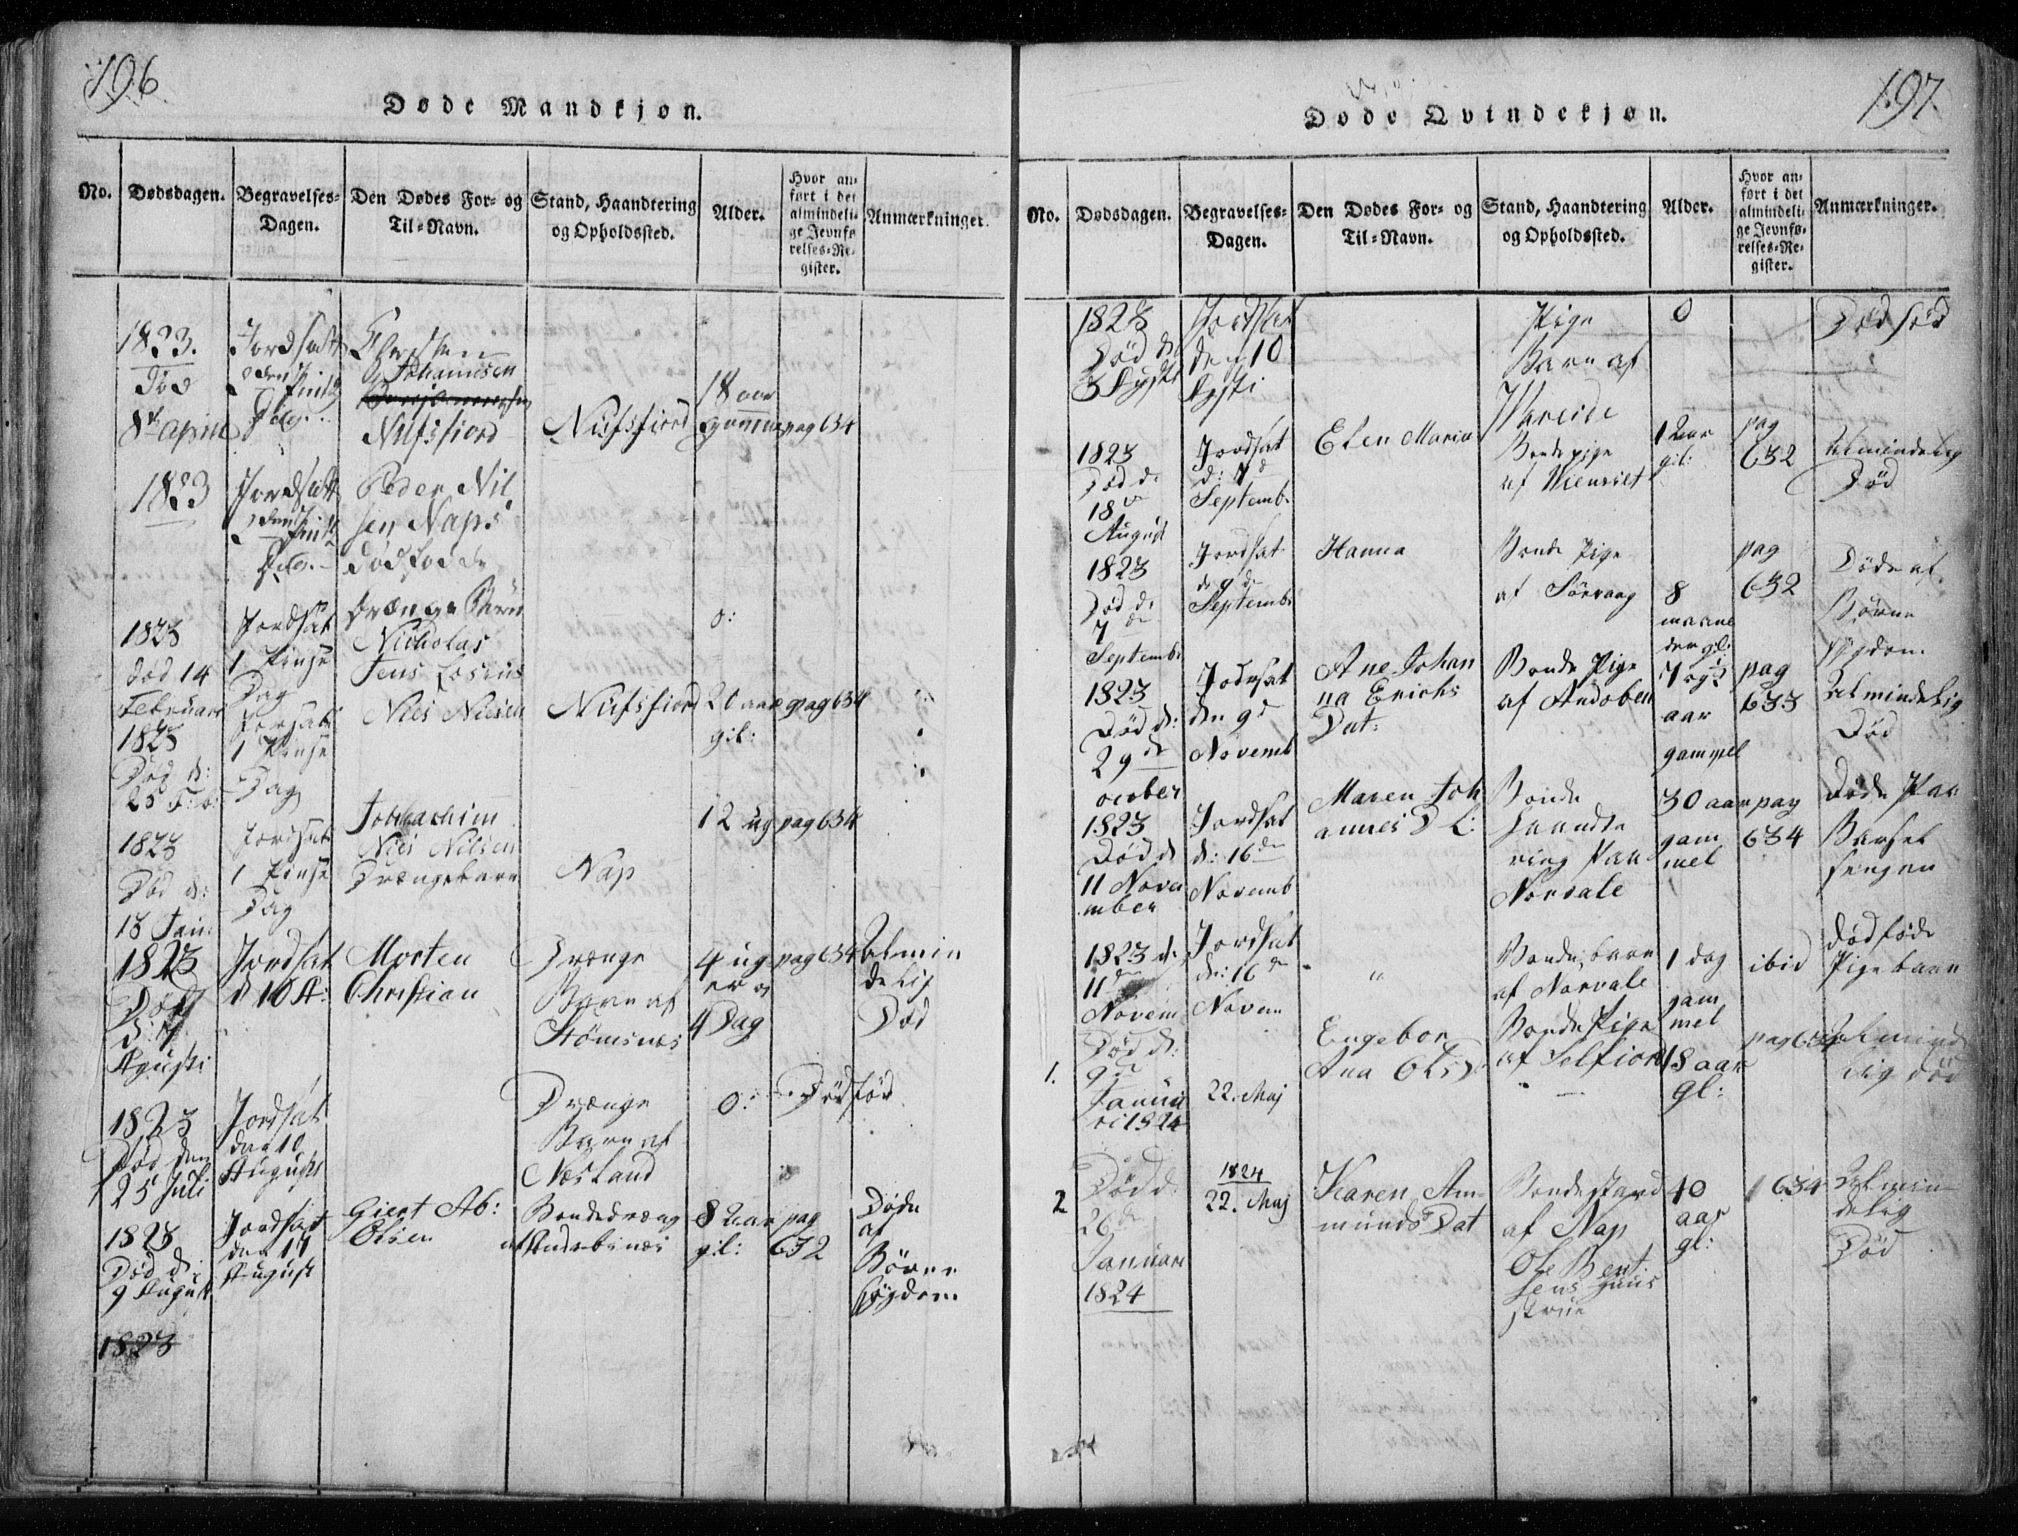 196
Døde Mandkjøn.
No.
Dødsdagen.
Begravelses-
Dagen.
Den Dødes For- og
Til-Navn.
Stand, Haandtering
og Opholdssted.
Alder.
Hvor an-
ført i det
almindeli-
ge Jevnfø-
relses-Re-
gister.
Anmærkninger.
1823.
Død
8de April
Jordsatt
den
Johannesen
Nufsfiord
Nufsfiord
18 aar
pag 634
1823
Jordsatt
den
Peder Nil
sen Naps
dødfødde
Drænge Barn
1823
død 14
Februar
Jordsat
1 Pinse
Dag
Nicholas
Jens
Niels Nielsen
Nufsfiord
0:
20 aar
gil:
pag 634
1823
Død d:
25 Feb:
Jorsat
1 Pinse
Dag
1823
Død d:
18 Jan:
Jordsat
1 Pinse
Dag
Johachim
Niels Nilsen
Drængebarn
Nap
12 ug
pag 634
1823
Død
d: 7
Agusti
Jordsat
d 10 A:
Morten
Christian
Drænge
Barn af
Stømsnes
4 ug
er og
4 Dag
pag 634
Almin
delig
Død
1823
Død den
25 Juli
Jordsat
den 10
Augusti
Drænge
Barn af
Næsland
0:
Dødfød
1823
Død d:
9 August
Jordsat
den 11
August
Giert Ab:
Olsen
Bondedræng
8 Aar
gil:
pag
632
Døde
af
Børne
sygdom
1823

197
Døde Qvindekjøn.
No.
Dødsdagen.
Begravelses-
Dagen.
Den Dødes For- og
Til-Navn.
Stand, Haandtering
og Opholdssted.
Alder.
Hvor an-
ført i det
almindeli-
ge Jevnfø-
relses-Re-
gister.
Anmærkninger.
1823
Død de
3 Agusti
Jordsat
den 10
Agsti
Pige
Barn af
Vareide
0
Død fød
1823
Død d:
18de
August
Jordsat
d: 7de
Septemb:
Elen Maria
Bondepige
af
1 Aar
gil:
pag
632
Almindelig
Død
1823
Død d:
7de
Septemb:
Jordsat
d: 9de
Septemb:
Hanna
Bonde Pige
af Sørvaag
8
maane
der gl:
pag
632
Døde af
Børne
sygdom
1823
Død d:
29de
october
Jodsat
den 9de
Novemb
Ane Johan
na Erichs
Dat:
Bonde Pige
af Andoben
7 og ½
aar
gammel
pag
633
Almindelig
Død
1823
Død d
11 Nove
mber
Jordsat
d: 16de
Novemb
Maren Joh
annes D
Bonde
Haandte
ring Paa
Norvale
30 aar
gam
mel
pag
634
Døde Paa
Barsel
sengen
1823 d:
11de
Novem
Jordsat
d: 16de
Novem
"
Bonde barn
af Norvale
1 dag
gam
mel
ibid
dødføde
Pige barn
1.
Død d:
9de
Januari
1824
22. Maj
Engebor
Ana Ols D:
Bonde Pige
af Selfiord
18 aar
gl:
pag 634
Almind
elig død
2
Død d:
26de
Januari
1824
1824
22. Maj
Karen Am-
munds Dat
af Nap
Ole Bent
sens Huus
strue
40
aar
gl:
634
Almin-
delig
Død